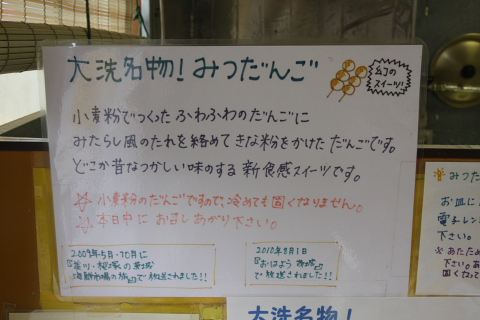 大洗名物！みつだんご
幻の
スイーツ!!
小麦粉でつくった ふわふわのだんごに
みたらし風のたれを絡めて きな粉をかけた だんごです。
どこか昔なつかしい味のする 新食感スイーツです。
☆ 小麦粉のだんごですので、冷めても固くなりません。
☆ 本日中に お召しあがり下さい。
2009年・5月・10月に
で 放送されました!!
2010年9月1日
『おはよう 茨城』
で・放送されました!!
みつだ
お皿に
電子レン
下さい。
※ あたため
下さい。
固くなって
大洗名物！